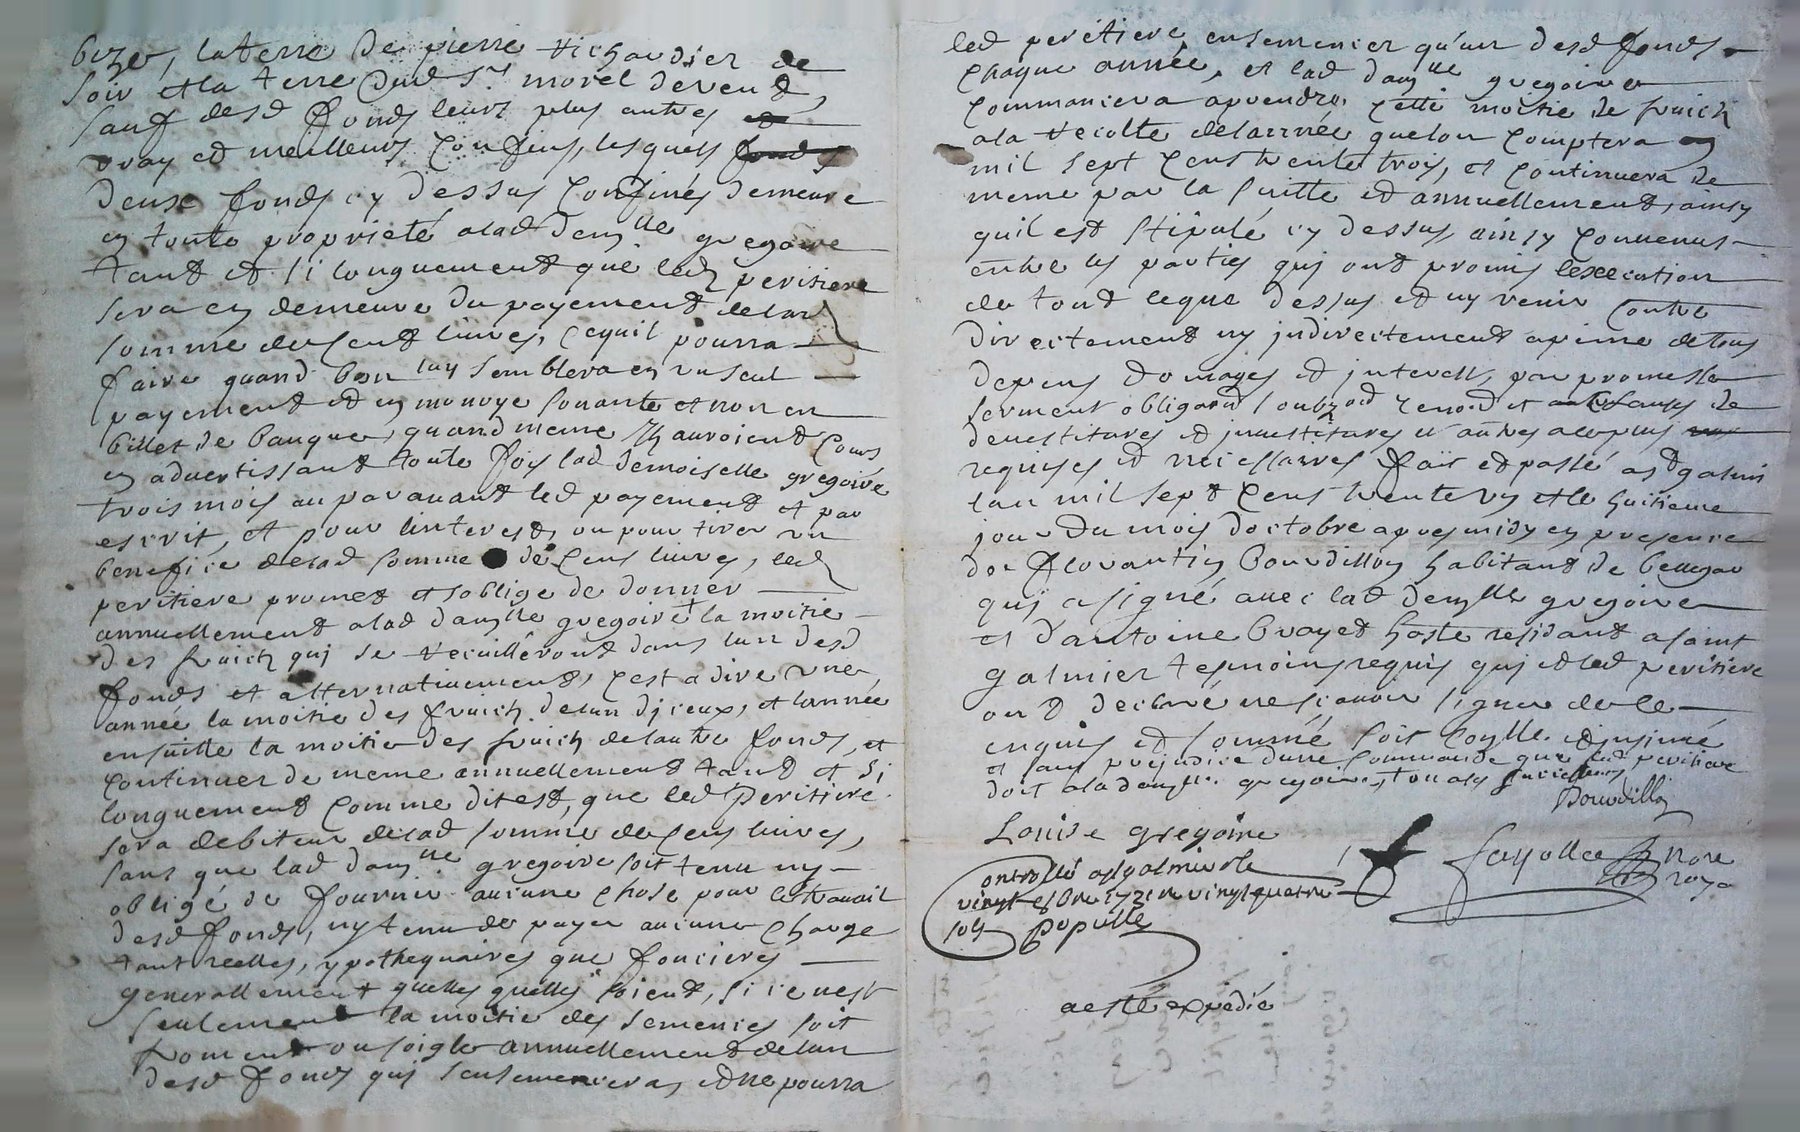 bize, la terre de pierre Richaudier de
soir et la terre dud Sr morel de vend,
sauf desd fonds leurs plus autres
vray et meilleurs Confins, lesquels fonds
deux fonds cy dessus Confinés demeure
en toute proprieté alad demlle gregoire
tand et si longuement que led peritiere
sera en demeure du payement de lad
somme de Cent livres, ce quil pourra
faire quand bon luy semblera en un seul
payement et en monoye sonante et non en
billet de banque, quand meme Ils auroient Cours
en advertissant toute fois lad demoiselle gregoire
trois mois auparavant led payement et par
escrit, et pour linterest, ou pour tirer un
benefice de lad somme de Cens livres, led
peritiere promet et soblige de donner
annuellement alad damlle gregoire la moitie
des fruicts qui se recuilleront dans lun desd
fonds et alternativement, cest a dire une
année la moitie des fruicts de lun diceux, et lannée
ensuitte la moitie des fruicts de lautre fonds, et
Continuer de meme annuellement tand et si
longuement Comme dit est, que led Peritiere
sera debiteur de lad somme de Cens livres,
sans que lad damlle gregoire soit tenu ny
obligé de fournir aucune chose pour le travail
desd fonds, ny tenu de payer aucune charge
tant reelles, ypothequaires que foncieres
generallement quelles quelles soient, si ce nest
seulement la moitie des semences soit
froment ou soigle annuellement de lun
desd fonds qui sensemencera, et ne pourra
led peritiere ensemencer qu'un desd fonds
chaque année, et lad damlle gregoire
Commancera a prendre cette moitie de fruicts
a la recolte de lannée que lon Comptera
mil sept Cens trente trois, et Continuera de
meme par la suitte et annuellement, ainsy
quil est stipulé cy dessus, ainsy Convenus
entre les parties qui ont promis lexecution
de tout ceque dessus et ny venir Contre
directement ny indirectement a peine de tous
depens domages et interests, par promesse
serment obligaõn soubzoñ renoñ et clauses de
devestitures et investitures et autres a ce plus
requises et necessaires fait et passé a St galmier
lan mil sept Cens trente un et le huitieme
jour du mois doctobre apres midy en presence
de florantin Bourdillon habitant de bellegar
qui a signé avec lad demlle gregoire
et d'antoine brayet hoste residant a saint
galmier tesmoins requis qui et led peritiere
ont declaré ne scavoir signer de ce
enquis et sommé soit Coylle et insinué
et sans prejudice dune Commande que led peritiere
doit a la demlle gregoire
Bourdillon
Louise gregoire
fayolle nore
royal
Controllé a St galmier le
vingt 8bre 1731 re vingt quatre
sols populle
a esté expedié